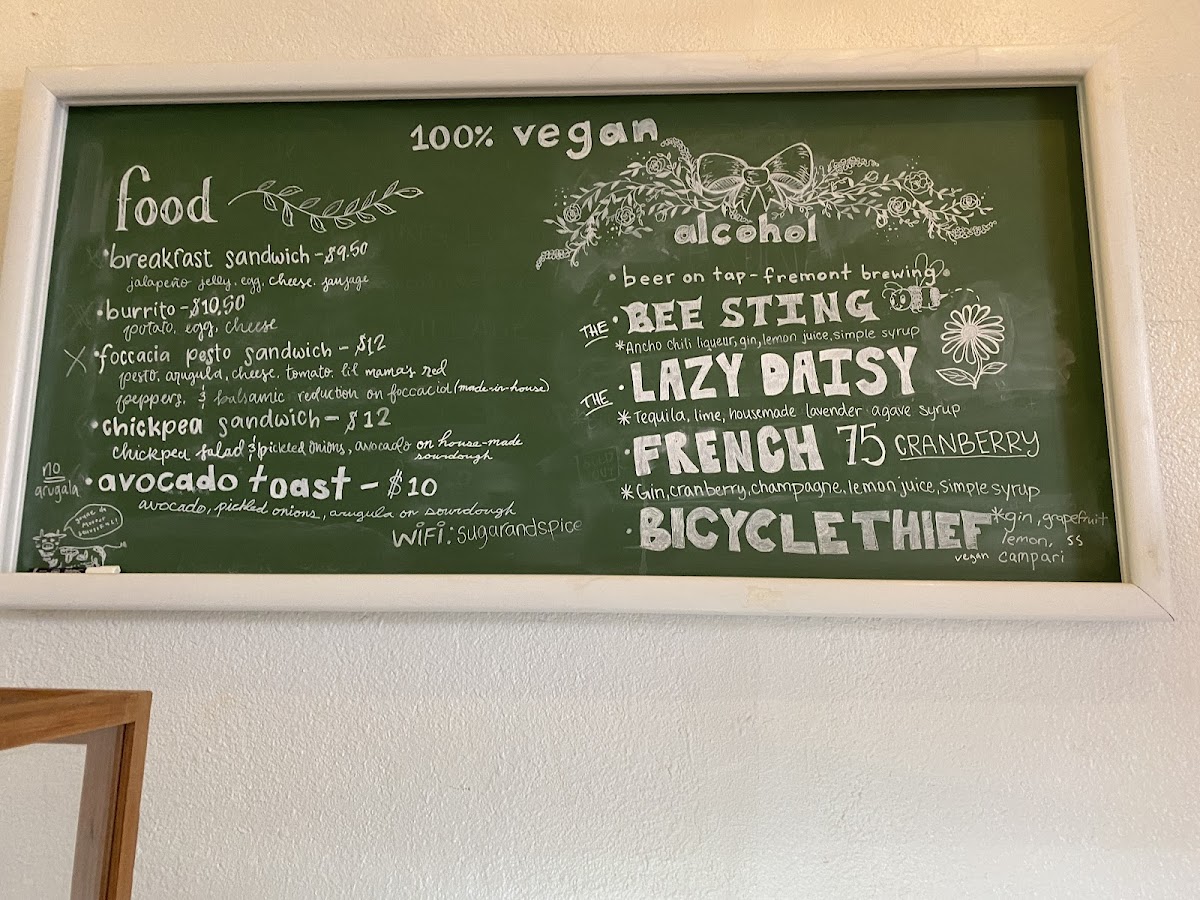 100% vegan
food
• breakfast sandwich - $9.50
jalapeño jelly, egg, cheese, sausage
• burrito - $10.50
potato, egg, cheese
X • foccacia pesto sandwich - $12
pesto, arugula, cheese, tomato, lil mama's red
peppers, & balsamic reduction on foccacia (made-in-house)
• chickpea sandwich - $12
chickpea salad & pickled onions, avocado on house-made
sourdough
no
arugala
• avocado toast - $10
avocado, pickled onions, arugula on sourdough
WiFi: sugarandspice
alcohol
• beer on tap - fremont brewing
THE • BEE STING
*Ancho Chili liqueur, gin, lemon juice, simple syrup
THE • LAZY DAISY
*Tequila, lime, housemade lavender agave syrup
• FRENCH 75 CRANBERRY
*Gin, cranberry, champagne, lemon juice, simple syrup
• BICYCLE THIEF *gin, grapefruit
lemon, ss
vegan campari